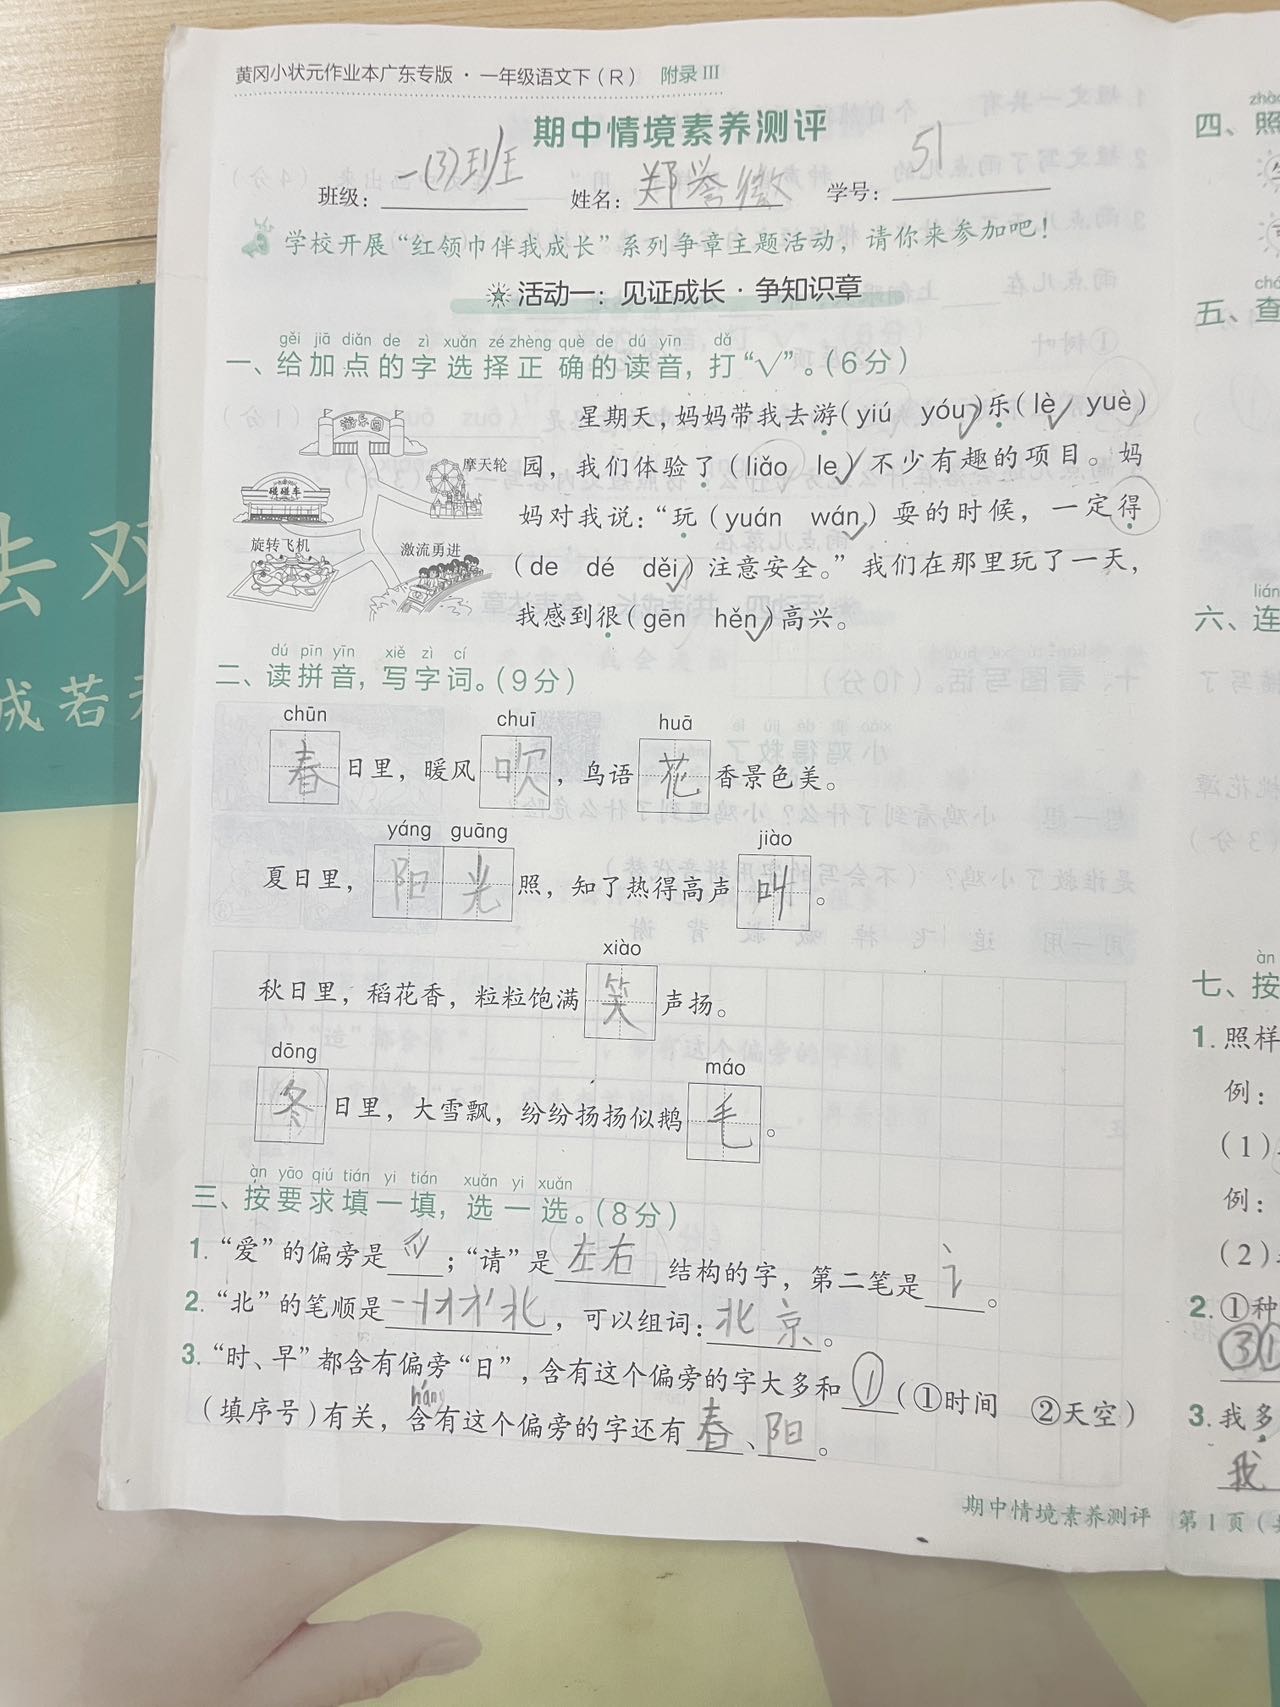 黄冈小状元作业本广东专版·一年级语文下(R) 附录Ⅲ
期中情境素养测评
班级:一(3)班 姓名:郑誉微 学号:51
学校开展“红领巾伴我成长”系列争章主题活动,请你来参加吧!
活动一:见证成长·争知识章
gěi jiā diǎn de zì xuǎn zé zhèng què de dú yīn dǎ
一、给加点的字选择正确的读音,打“√”。(6分)
游乐园
摩天轮
碰碰车
旋转飞机
激流勇进
星期天,妈妈带我去游(yiú yóu√)乐(lè√ yuè)
园,我们体验了(liǎo le√)不少有趣的项目。妈
妈对我说:“玩(yuán wán√)耍的时候,一定得
(de dé děi√)注意安全。”我们在那里玩了一天,
我感到很(gēn hěn√)高兴。
dú pīn yīn xiě zì cí
二、读拼音,写字词。(9分)
chūn chuī huā
春日里,暖风吹,鸟语花香景色美。
yáng guāng jiào
夏日里,阳光照,知了热得高声叫。
xiào
秋日里,稻花香,粒粒饱满笑声扬。
dōng máo
冬日里,大雪飘,纷纷扬扬似鹅毛。
àn yāo qiú tián yi tián xuǎn yi xuǎn
三、按要求填一填,选一选。(8分)
1.“爱”的偏旁是爫;“请”是左右结构的字,第二笔是讠。
2.“北”的笔顺是 北,可以组词:北京。
3.“时、早”都含有偏旁“日”,含有这个偏旁的字大多和①(①时间 ②天空)
hán
(填序号)有关,含有这个偏旁的字还有春、阳。
期中情境素养测评 第1页(
zhào
四、照
chá
五、查
lián
六、连
àn
七、按
1.照样
例:
(1)
例:
(2)
2.①种
③①
3.我多
我
去双
成若